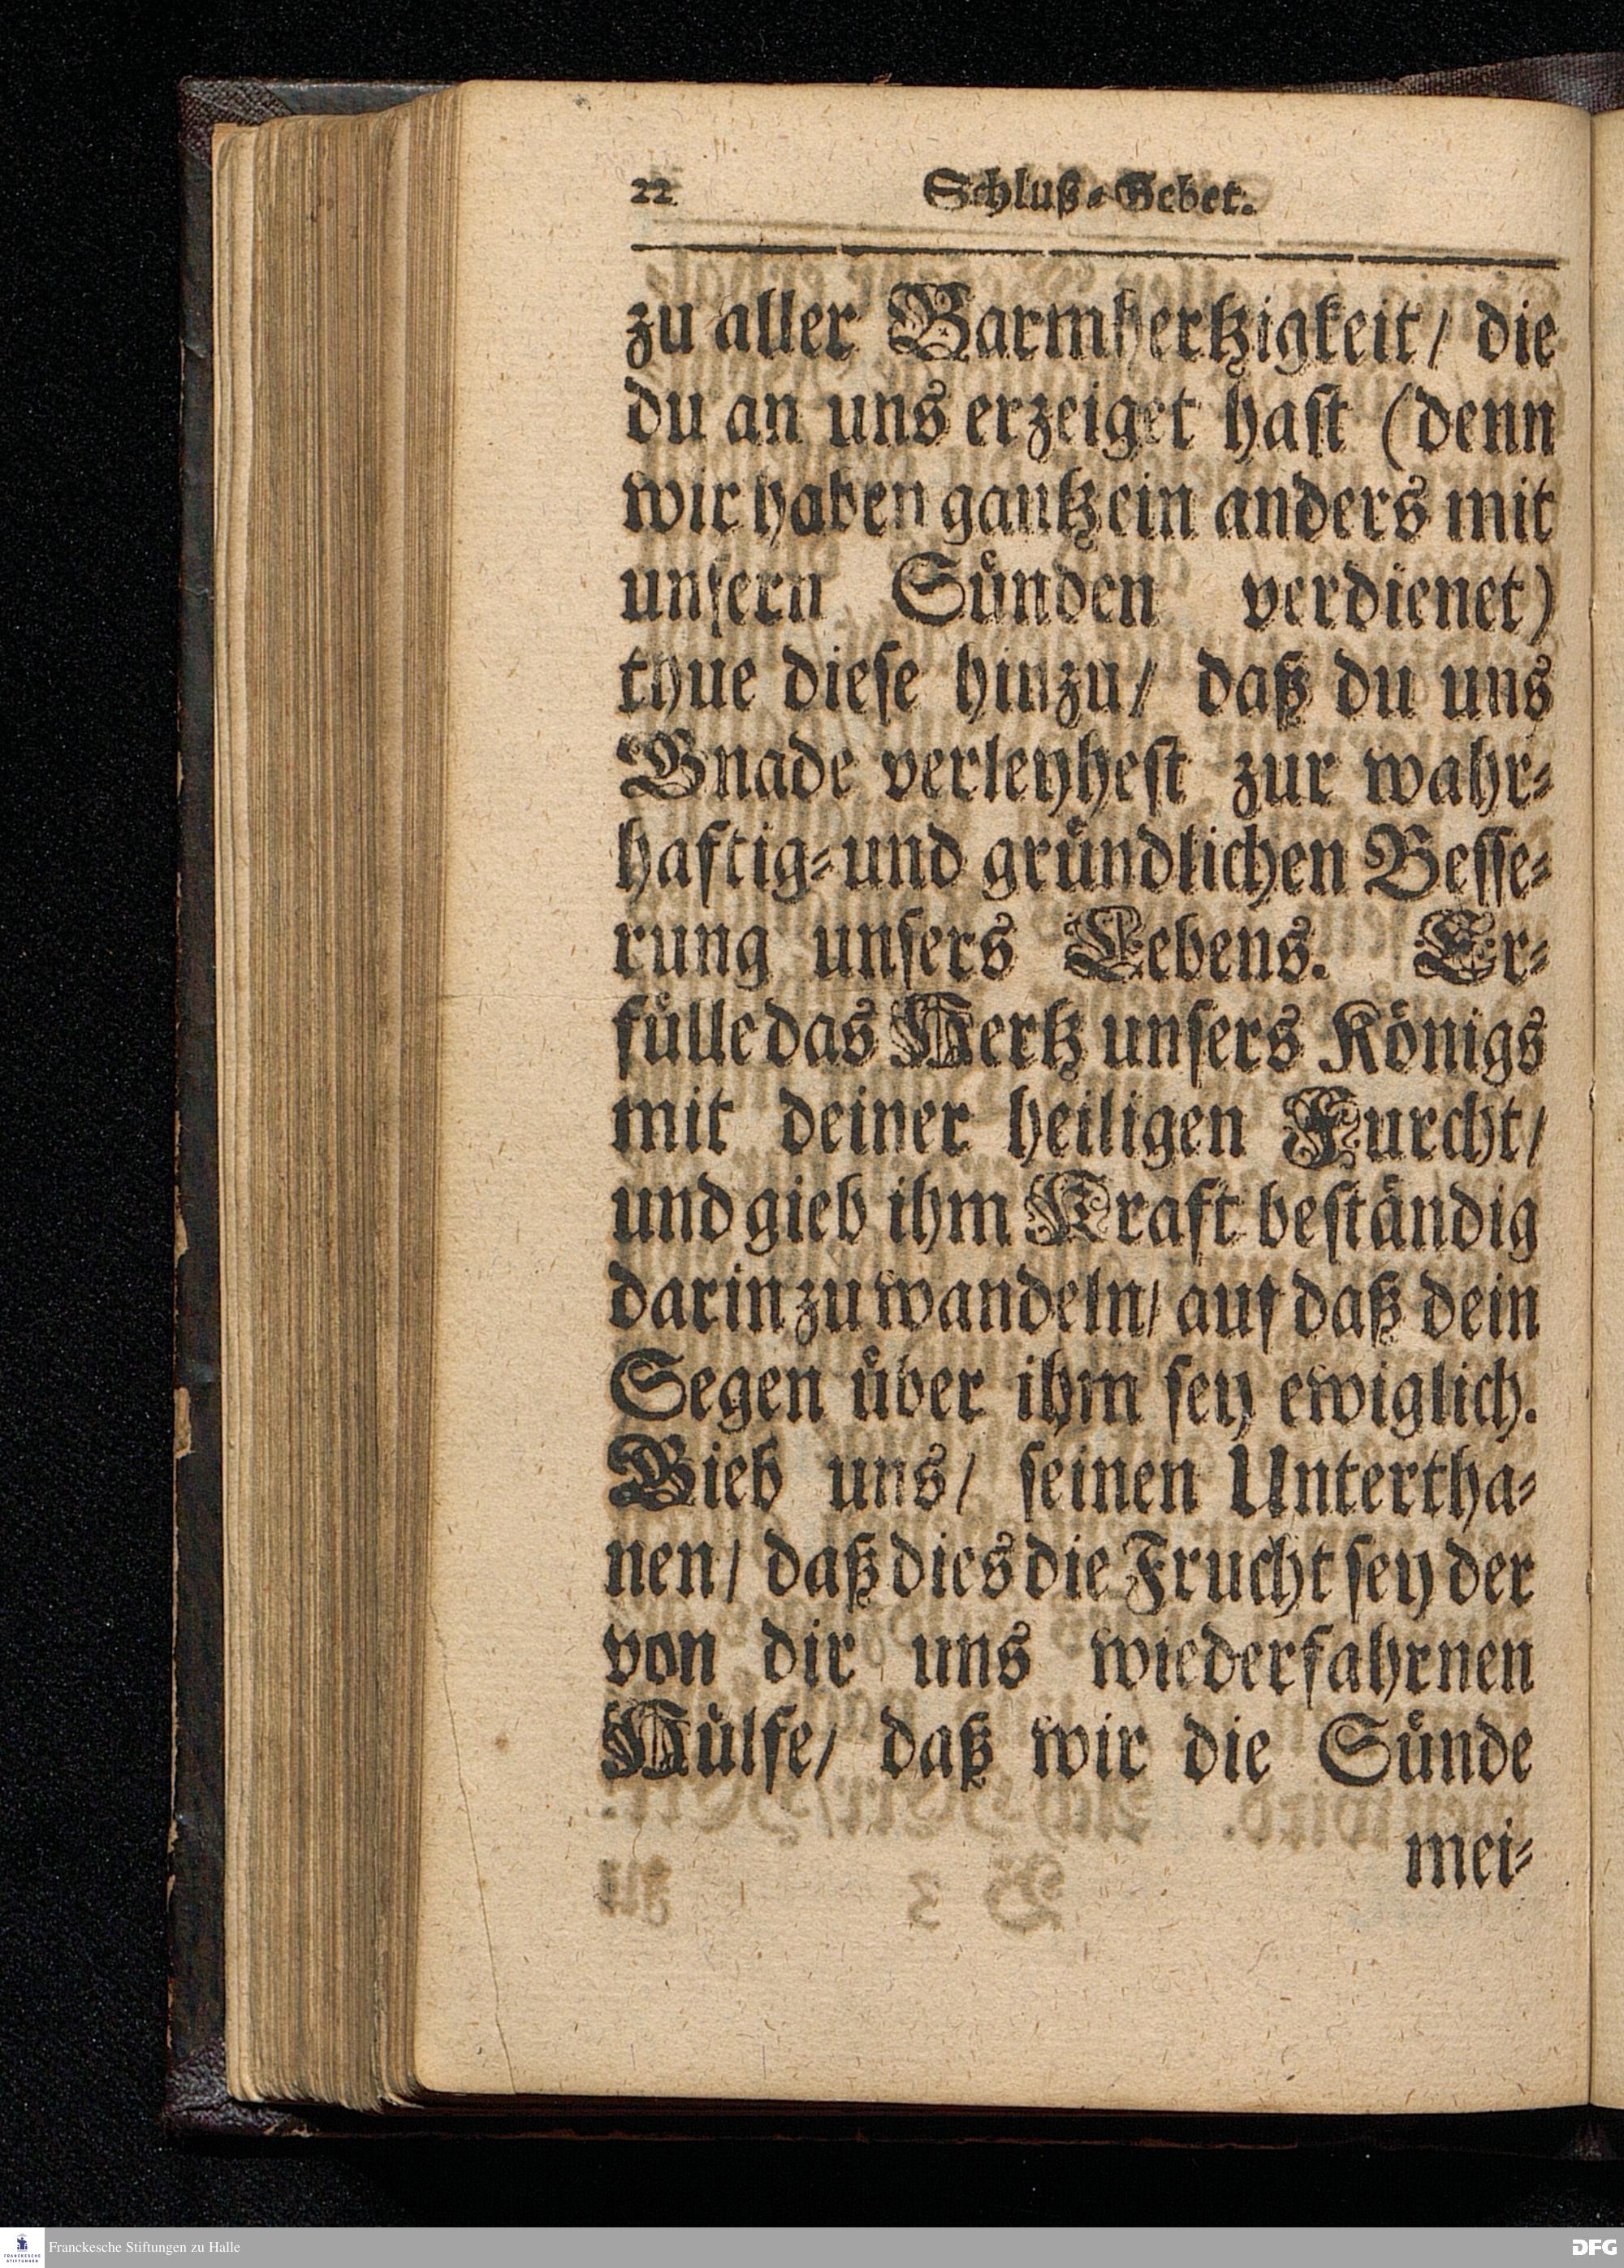 22 Schluß-Gebet.
zu aller Barmhertzigkeit/ die
du an uns erzeiget hast (denn
wir haben gantz ein anders mit
unsern Sünden verdienet)
thue diese hinzu/ daß du uns
Gnade verleyhest zur wahr-
haftig- und gründlichen Besse-
rung unsers Lebens. Er-
fülle das Hertz unsers Königs
mit deiner heiligen Furcht/
und gieb ihm Kraft beständig
darin zu wandeln/ auf daß dein
Segen über ihm sey ewiglich.
Gieb uns/ seinen Untertha-
nen/ daß dies die Frucht sey der
von dir uns wiederfahrnen
Hülfe/ daß wir die Sünde
mei-
FRANCKESCHE STIFTUNGEN
Franckesche Stiftungen zu Halle
DFG